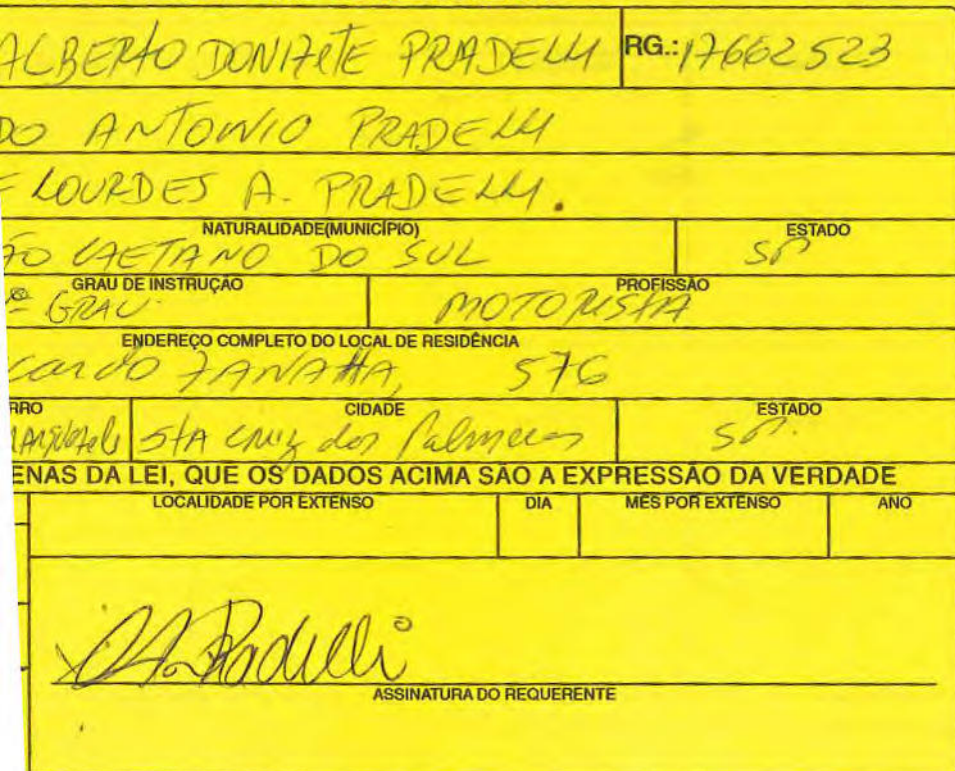 ALBERTO DONIZETE PRADELLI RG.: 17662523
DO ANTONIO PRADELLI
E LOURDES A. PRADELLI.
NATURALIDADE(MUNICÍPIO) ESTADO
ÃO CAETANO DO SUL SP
GRAU DE INSTRUÇÃO PROFISSÃO
º GRAU MOTORISTA
ENDEREÇO COMPLETO DO LOCAL DE RESIDÊNCIA
cardo ZANATTA, 576
RRO CIDADE ESTADO
STA CRUZ das Palmeiras SP.
ENAS DA LEI, QUE OS DADOS ACIMA SÃO A EXPRESSÃO DA VERDADE
LOCALIDADE POR EXTENSO DIA MÊS POR EXTENSO ANO
Pradelli
ASSINATURA DO REQUERENTE